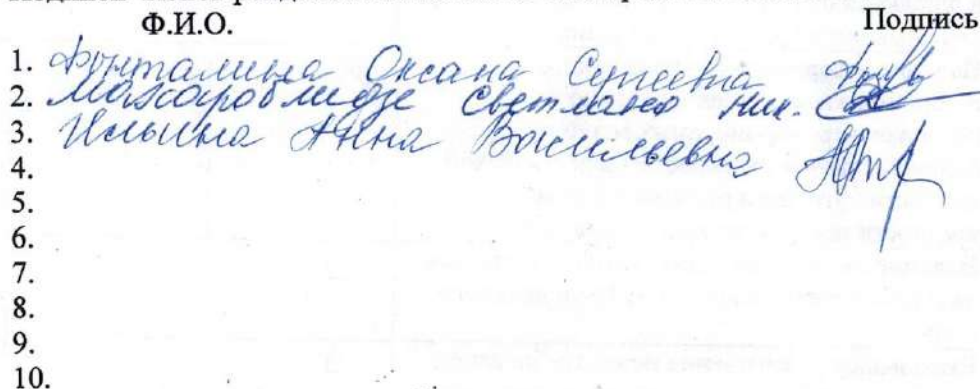 Ф.И.О. Подпись
1. Фонталина Оксана Сергеевна
2. Мажароблидзе Светлана Ник.
3. Ильина Анна Васильевна
4.
5.
6.
7.
8.
9.
10.